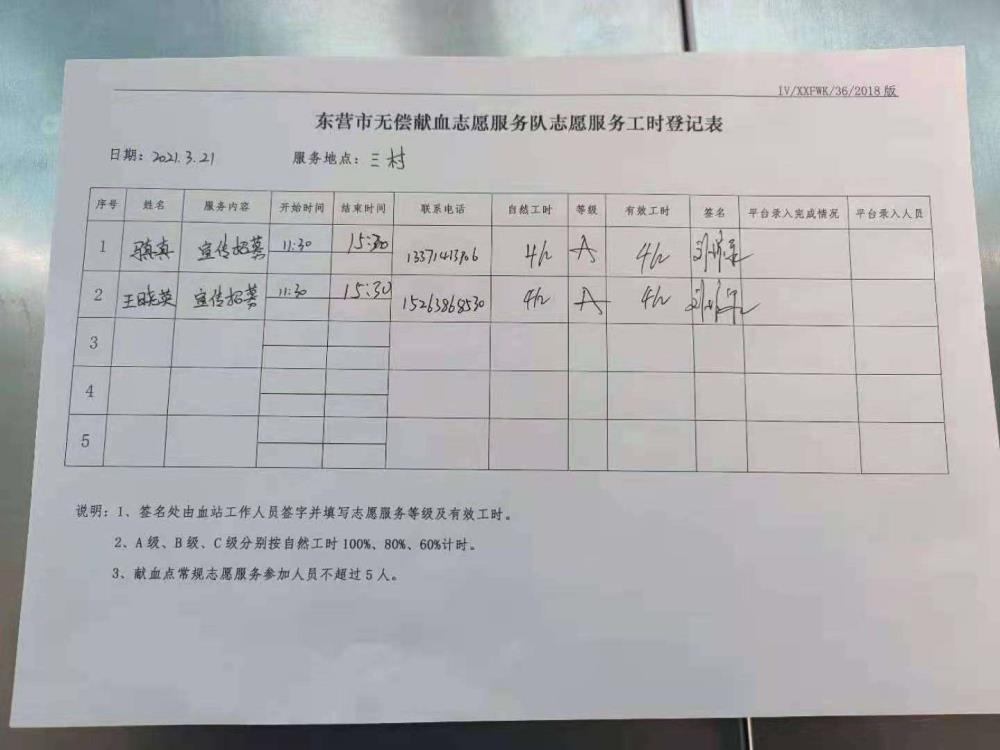 IV/XXFWK/36/2018 版
东营市无偿献血志愿服务队志愿服务工时登记表
日期：2021.3.21 服务地点：三村
序号 姓名 服务内容 开始时间 结束时间 联系电话 自然工时 等级 有效工时 签名 平台录入完成情况 平台录入人员
1 宣传招募 11:30 15:30 4h A 4h
2 王晓英 宣传招募 11:30 15:30 15263868530 4h A 4h
3
4
5
说明：1、签名处由血站工作人员签字并填写志愿服务等级及有效工时。
2、A 级、B 级、C 级分别按自然工时 100%、80%、60%计时。
3、献血点常规志愿服务参加人员不超过 5 人。